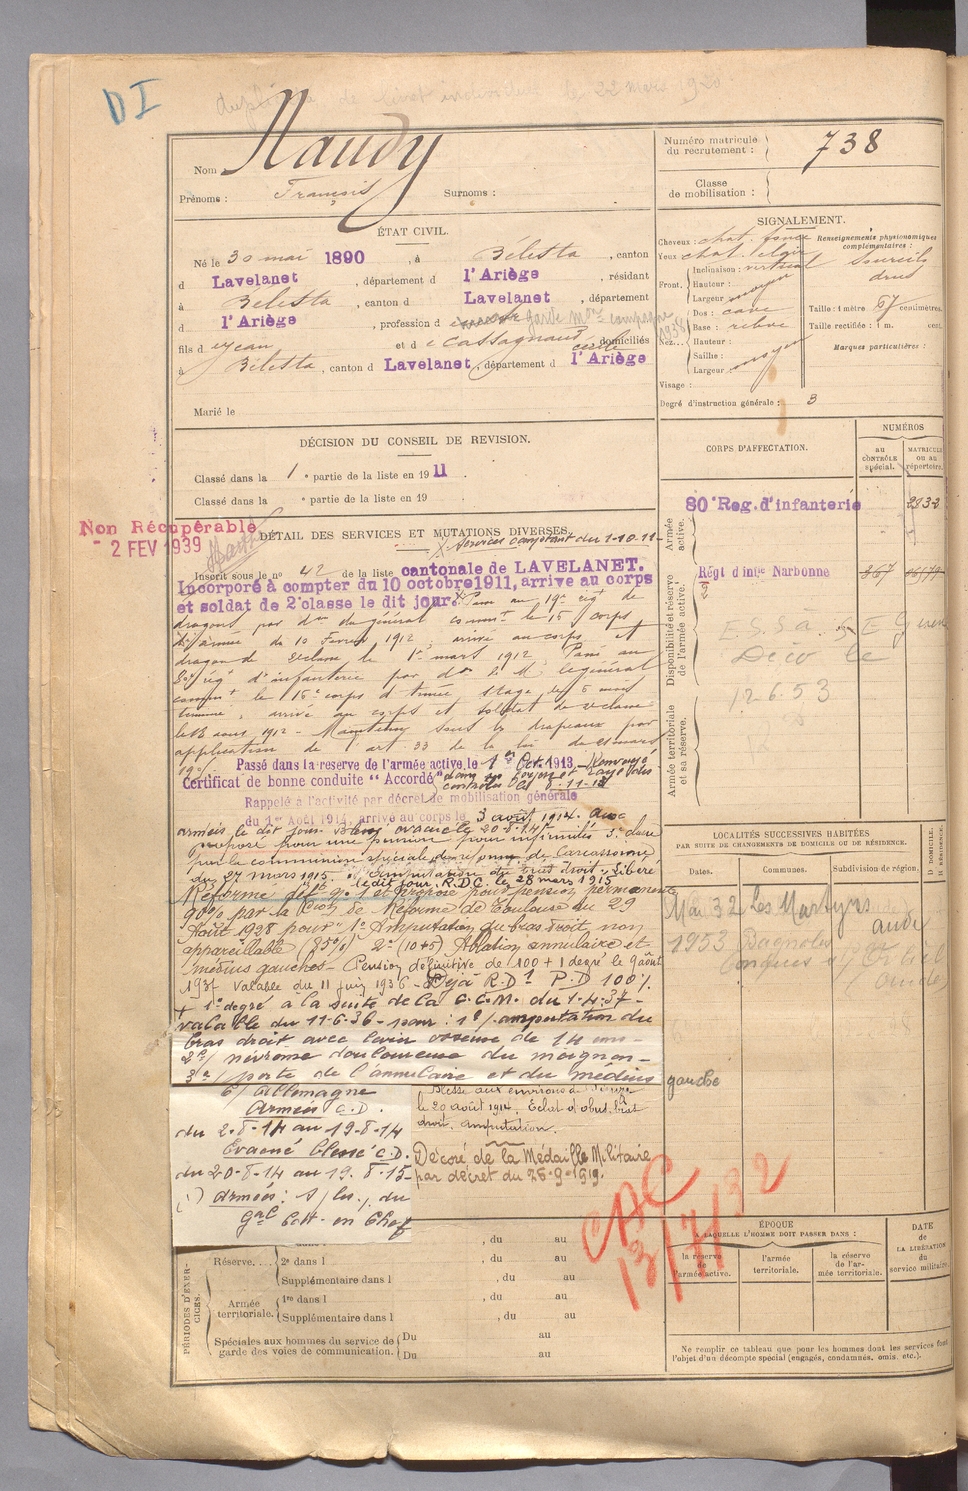 DI
duplicata de livret individuel le 22 mars 1920
Nom Naudy
Prénoms : François Surnoms :
Numéro matricule du recrutement : 738
Classe de mobilisation :
ÉTAT CIVIL.
Né le 30 mai 1890, à Bélesta, canton
d Lavelanet, département d l'Ariège, résidant
à Bélesta, canton d Lavelanet, département
d l'Ariège, profession d garde
fils d e Jean et d e Cassagnaud Cécile domiciliés
à Bélesta, canton d Lavelanet, département d l'Ariège
Marié le
SIGNALEMENT.
Cheveux : chat. foncé
Yeux chat. clair
Front. Inclinaison : vertical
Hauteur :
Largeur moyen
Nez. Dos : cave
Base : relevé
Hauteur :
Saillie :
Largeur : moyen
Visage :
Degré d'instruction générale : 3
Renseignements physionomiques complémentaires :
sourcils
drus
Taille : 1 mètre 67 centimètres.
Taille rectifiée : 1 m. cent.
Marques particulières :
DÉCISION DU CONSEIL DE REVISION.
Classé dans la 1e partie de la liste en 1911
Classé dans la e partie de la liste en 19
Non Récupérable
- 2 FEV 1939
DÉTAIL DES SERVICES ET MUTATIONS DIVERSES.
Services comptant du 1-10-11
Inscrit sous le no 42 de la liste cantonale de LAVELANET.
Incorporé à compter du 10 octobre 1911, arrive au corps
et soldat de 2e classe le dit jour. Passé au 19e rég. de
dragons par don du général commt le 15e corps
d'armée du 10 Février 1912, arrivé au corps et
dragon de 2e classe le 1er mars 1912. Passé au
80e rég. d'infanterie par don de M. le général
commt le 16e corps d'armée stage de 5 mois
terminé, arrivé au corps et soldat de 2e classe
le 13 août 1912 - Maintenu sous les drapeaux par
application de l'art 33 de la loi du 21 mars
1905
Passé dans la réserve de l'armée active, le 1er Oct. 1913. - Renvoyé
Certificat de bonne conduite "Accordé" dans ses foyers et rayé des
contrôles le 8-11-13
Rappelé à l'activité par décret de mobilisation générale
du 1er Août 1914, arrivé au corps le 3 août 1914. aux
armées le dit jour. Blessé évacué le 20-8-14.
proposé pour une pension pour infirmités 3e classe
par la commission spéciale de réforme de Carcassonne
du 27 mars 1915. "Amputation du bras droit". Libéré
le dit jour. R.D.C. le 28 mars 1915
Réformé déft no 1 et proposé pour pension permanente
90% par la Cion de Réforme de Toulouse du 29
Août 1928 pour : 1o Amputation du bras droit, non
appareillable (85%) 2o (10+5) Ablation annulaire et
médius gauches - Pension définitive de 100 + 1 degré le 9 août
1937 valable du 11 juin 1936 - Déjà R.D1 P.D 100%
+ 1o degré à la suite de la C.C.M. du 1-4-37 -
valable du 11-6-36 - pour : 1o/ amputation du
bras droit avec lésion osseuse de 14 cm -
2o/ névrome douloureux du moignon -
3o/ perte de l'annulaire et du médius gauche
C/ Allemagne
Armées C.D.
du 2-8-14 au 19-8-14
Évacué blessé C.D.
du 20-8-14 au 19-8-15
(1) Armées : s/ les, du
Gal Catt. en Chef
Blessé aux environs de
le 20 août 1914. Éclat d'obus bras
droit, amputation.
Décoré de la Médaille Militaire
par décret du 25-9-1919.
CORPS D'AFFECTATION.
NUMÉROS
au CONTRÔLE spécial.
MATRICULE ou au répertoire.
Armée active.
80e Reg. d'infanterie 2932
Disponibilité et réserve de l'armée active.
Régt d'inf.ie Narbonne 367
Décédé le
12.6.53
Armée territoriale et sa réserve.
LOCALITÉS SUCCESSIVES HABITÉES
PAR SUITE DE CHANGEMENTS DE DOMICILE OU DE RÉSIDENCE.
Dates. Communes. Subdivision de région. D DOMICILE. R RÉSIDENCE.
Mai 32 Les Martyrs Aude
1953 Bagnoles
Conques s/ Orbiel
(Aude)
CAC
13/7/32
ÉPOQUE
A LAQUELLE L'HOMME DOIT PASSER DANS :
la réserve de l'armée active.
l'armée territoriale.
la réserve de l'armée territoriale.
DATE DE LA LIBÉRATION du service militaire.
PÉRIODES D'EXERCICES.
, du au
Réserve.... 2e dans l , du au
Supplémentaire dans l , du au
Armée territoriale. 1re dans l , du au
Supplémentaire dans l , du au
Spéciales aux hommes du service de garde des voies de communication. Du au
Du au
Ne remplir ce tableau que pour les hommes dont les services font
l'objet d'un décompte spécial (engagés, condamnés, omis, etc.).